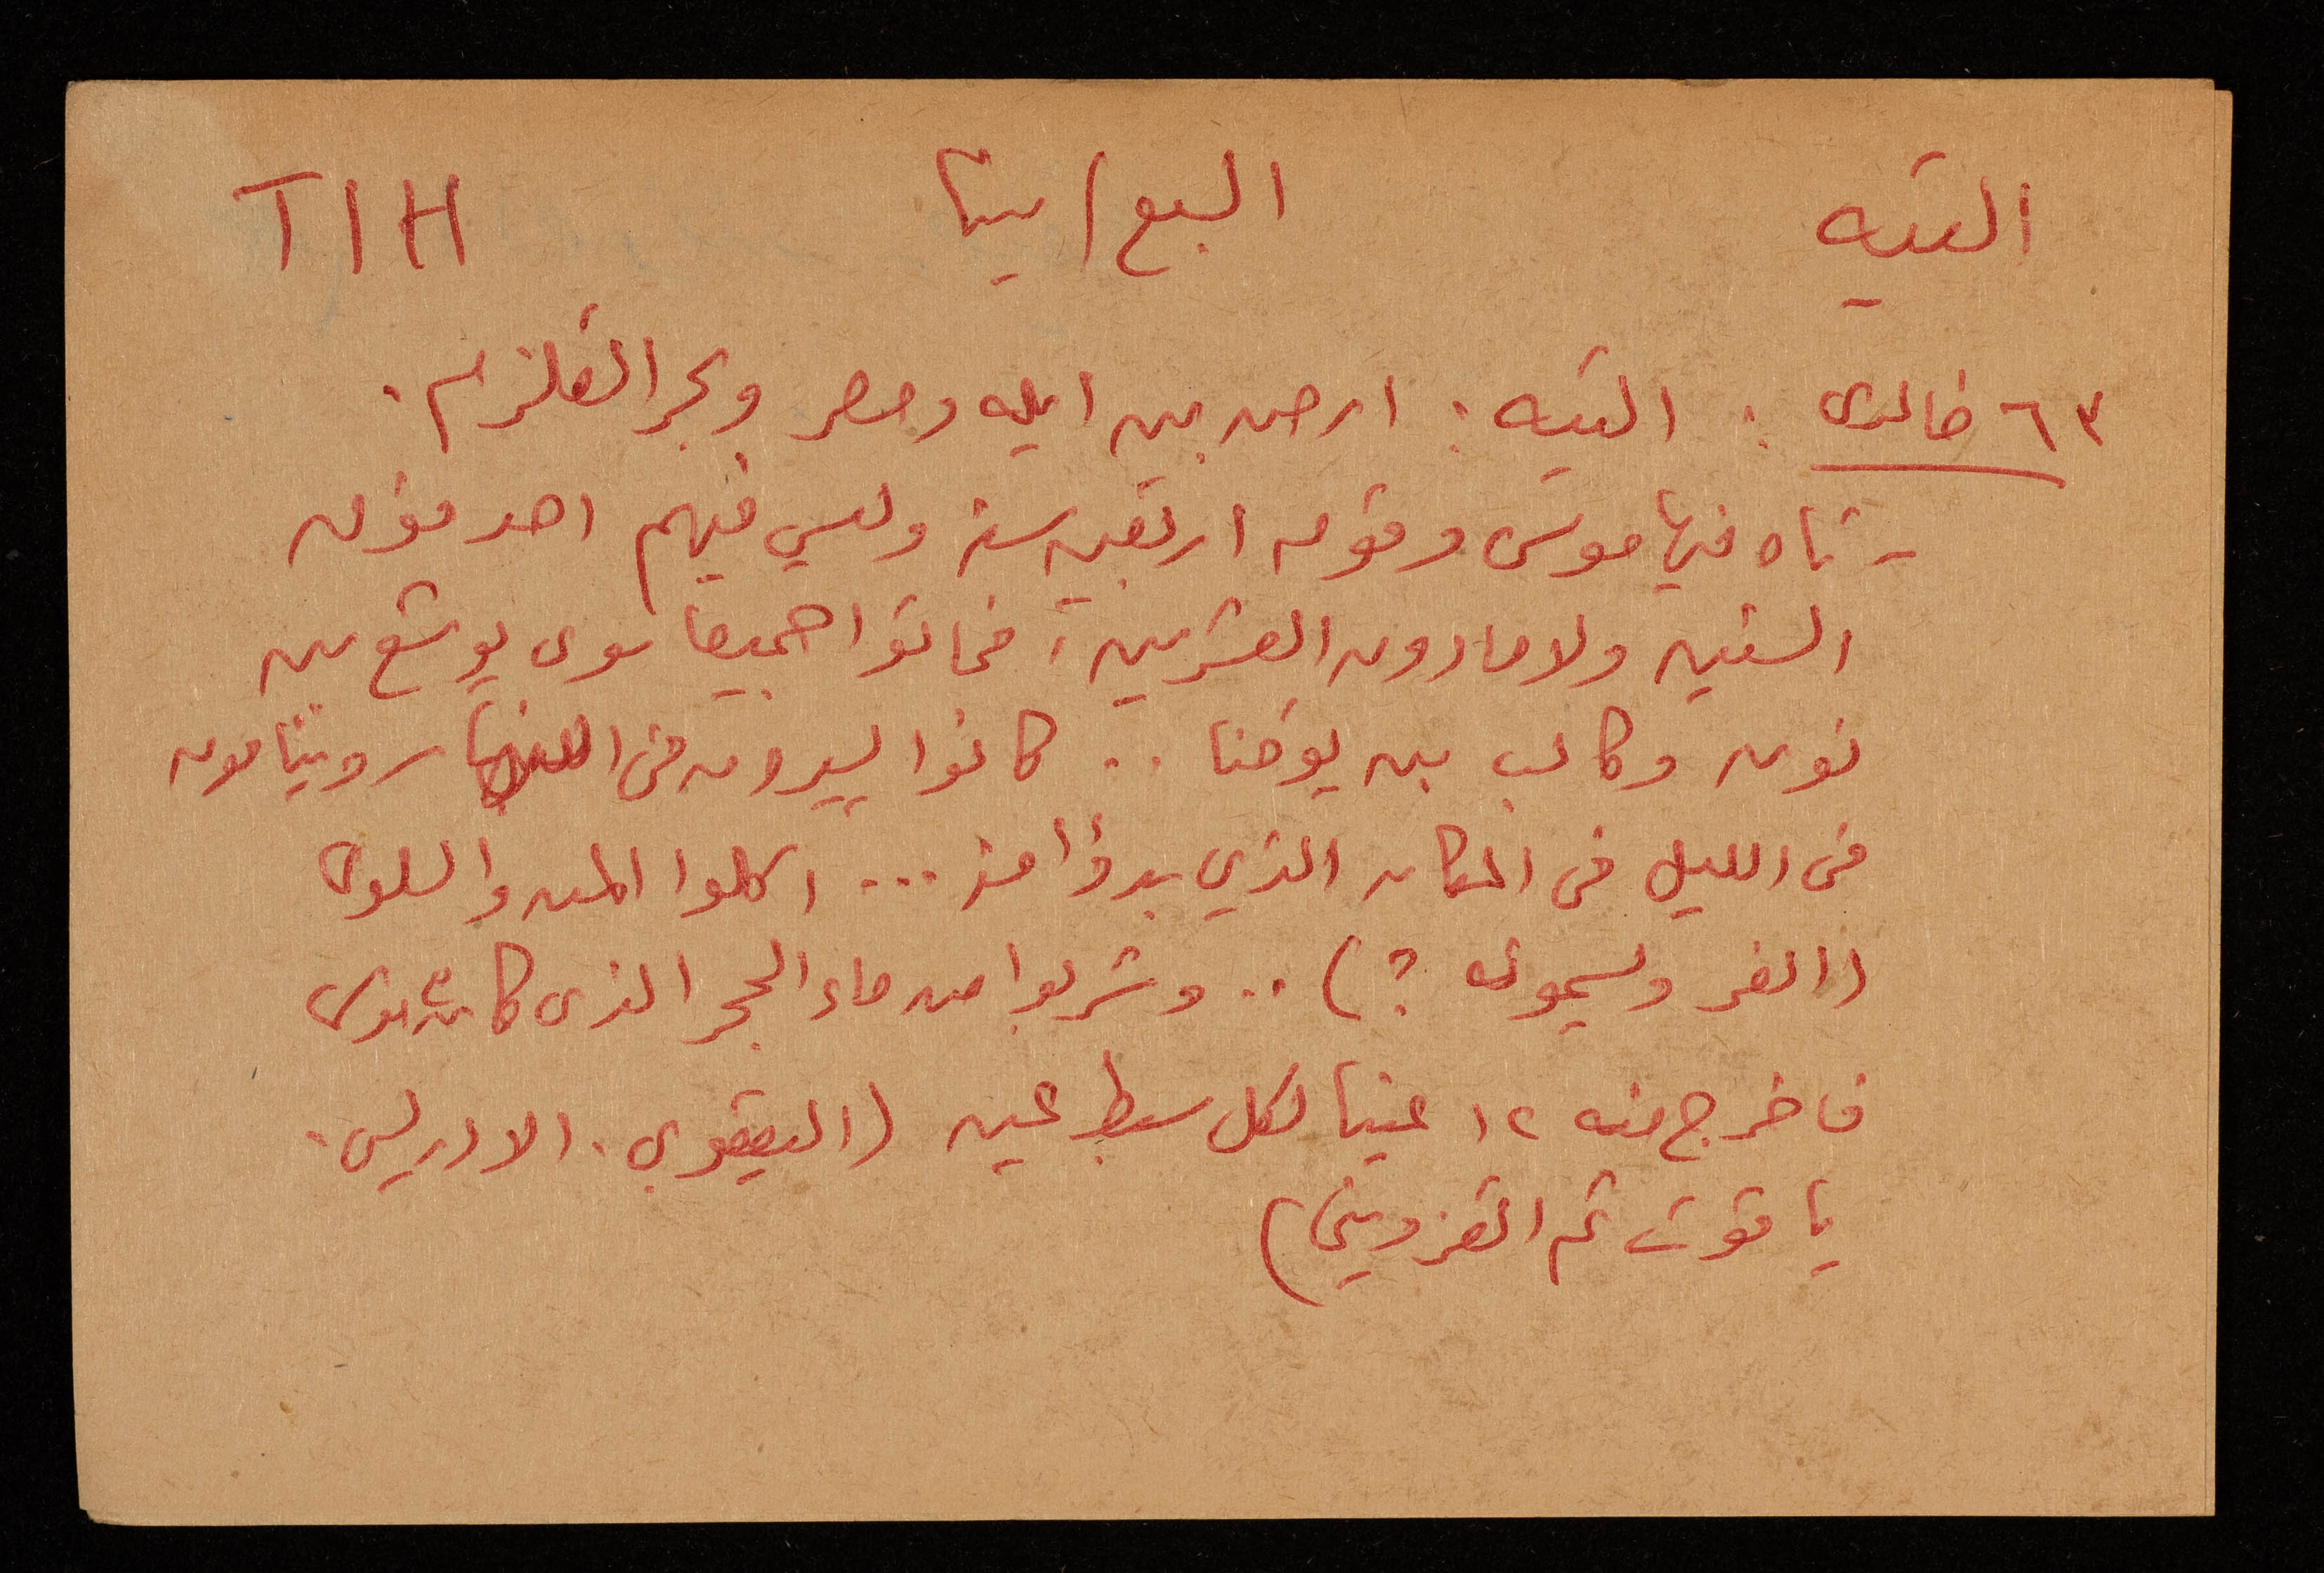 التيه السبع / سينا TIH
٦٣ خالدى : التيه : ارض بين ايله ومصر وبحر القلزم .
- تاه فيها موسى وقومه اربعين سنة وليس فيهم احد فوق
الستين ولا ما دون العشرين ، فماتوا جميعا سوى يوشع بن
نون وكالب بن يوفنا .. كانوا يسيرون فى النهار وينامون
فى الليل فى المكان الذي بدؤا منه ... اكلوا المن والسلوى
(الفر ولسيمونه ?) .. وشربوا من ماء الحجر الذى كان مع موسى
فاخرج منه ١٢ عينا لكل سبط عين (اليعقوبي . الادريسي .
ياقوت ثم القزويني)